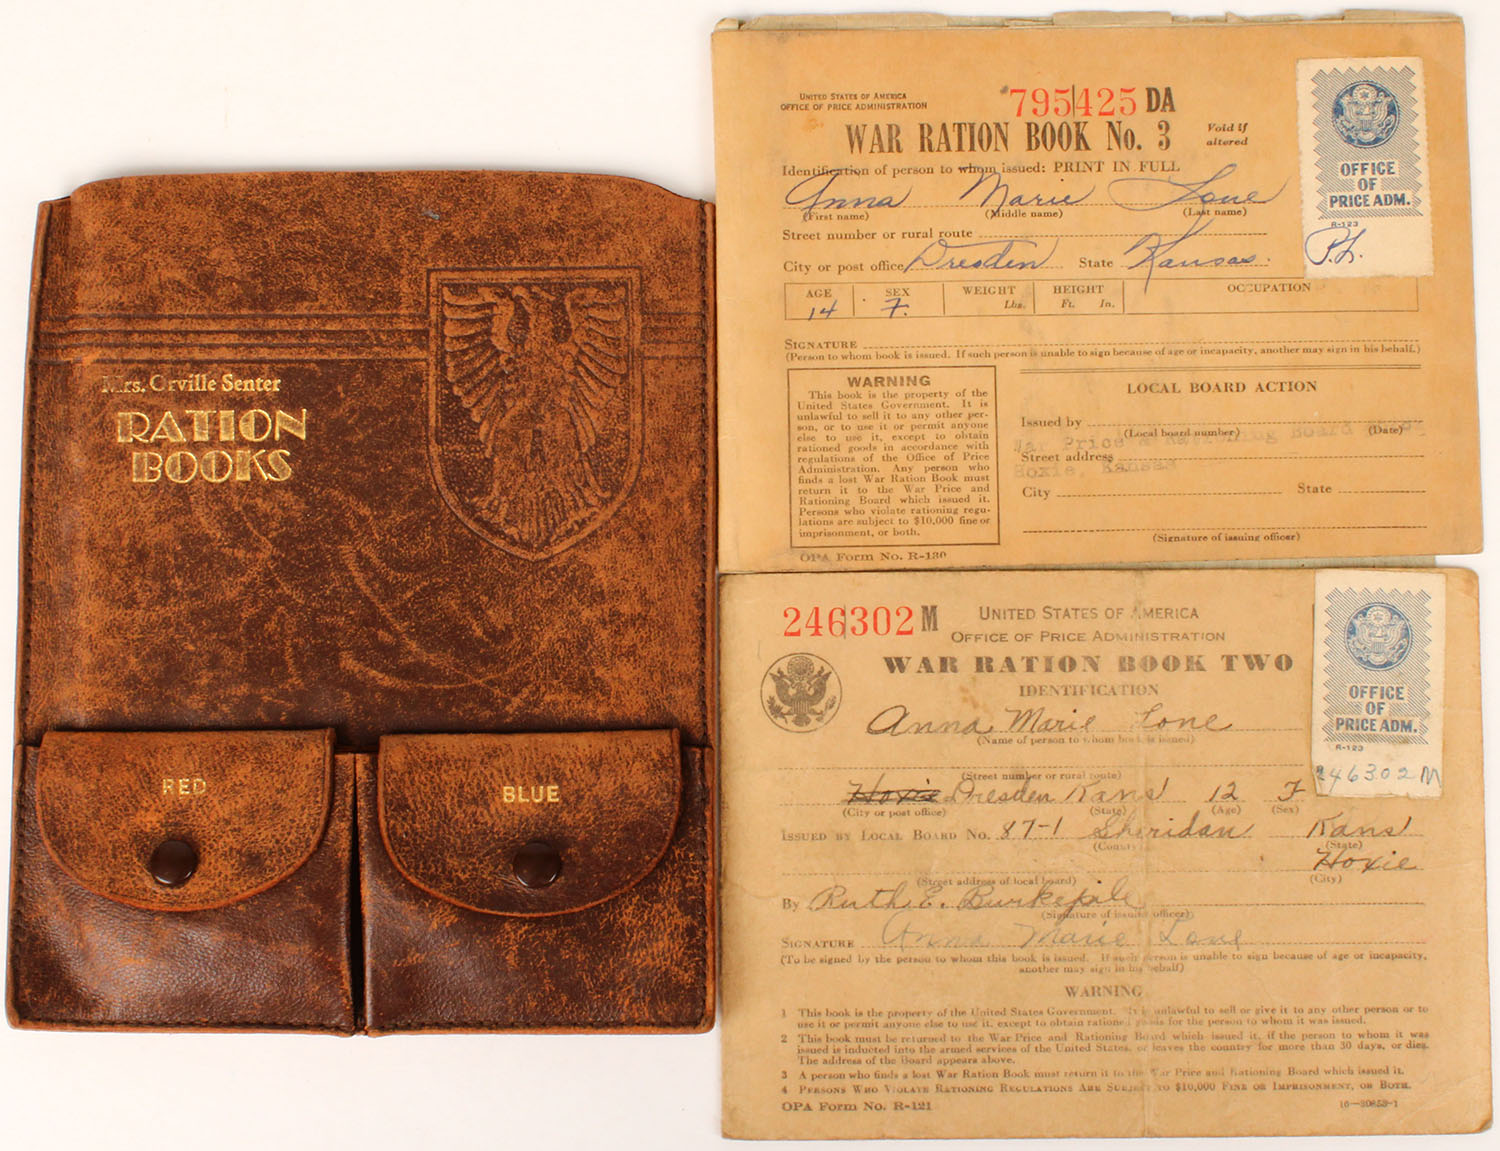 Mrs. Orville Senter
RATION
BOOKS
RED
BLUE
UNITED STATES OF AMERICA
OFFICE OF PRICE ADMINISTRATION
795425 DA
WAR RATION BOOK No. 3
Void if
altered
Identification of person to whom issued: PRINT IN FULL
Anna Marie Lone
(First name) (Middle name) (Last name)
Street number or rural route
City or post office Dresden State Kansas.
AGE SEX WEIGHT HEIGHT OCCUPATION
14 F. Lbs. Ft. In.
SIGNATURE
(Person to whom book is issued. If such person is unable to sign because of age or incapacity, another may sign in his behalf.)
WARNING
This book is the property of the
United States Government. It is
unlawful to sell it to any other per-
son, or to use it or permit anyone
else to use it, except to obtain
rationed goods in accordance with
regulations of the Office of Price
Administration. Any person who
finds a lost War Ration Book must
return it to the War Price and
Rationing Board which issued it.
Persons who violate rationing regu-
lations are subject to $10,000 fine or
imprisonment, or both.
LOCAL BOARD ACTION
Issued by
(Local board number) (Date)
War Price & Rationing Board
Street address
Hoxie, Kansas
City State
(Signature of issuing officer)
OPA Form No. R-130
OFFICE
OF
PRICE ADM.
R-123
246302 M
UNITED STATES OF AMERICA
OFFICE OF PRICE ADMINISTRATION
WAR RATION BOOK TWO
IDENTIFICATION
Anna Marie Lone
(Name of person to whom book is issued)
(Street number or rural route)
Hoxie Dresden Kans 12 F
(City or post office) (State) (Age) (Sex)
ISSUED BY LOCAL BOARD NO. 87-1 Sheridan Kans
(County) (State)
Hoxie
(Street address of local board) (City)
By Ruth E. Burkepile
(Signature of issuing officer)
SIGNATURE Anna Marie Lone
(To be signed by the person to whom this book is issued. If such person is unable to sign because of age or incapacity,
another may sign in his behalf)
WARNING
1 This book is the property of the United States Government. It is unlawful to sell or give it to any other person or to
use it or permit anyone else to use it, except to obtain rationed goods for the person to whom it was issued.
2 This book must be returned to the War Price and Rationing Board which issued it, if the person to whom it was
issued is inducted into the armed services of the United States, or leaves the country for more than 30 days, or dies.
The address of the Board appears above.
3 A person who finds a lost War Ration Book must return it to the War Price and Rationing Board which issued it.
4 PERSONS WHO VIOLATE RATIONING REGULATIONS ARE SUBJECT TO $10,000 FINE OR IMPRISONMENT, OR BOTH.
OPA Form No. R-121
16-30853-1
OFFICE
OF
PRICE ADM.
R-123
246302 M